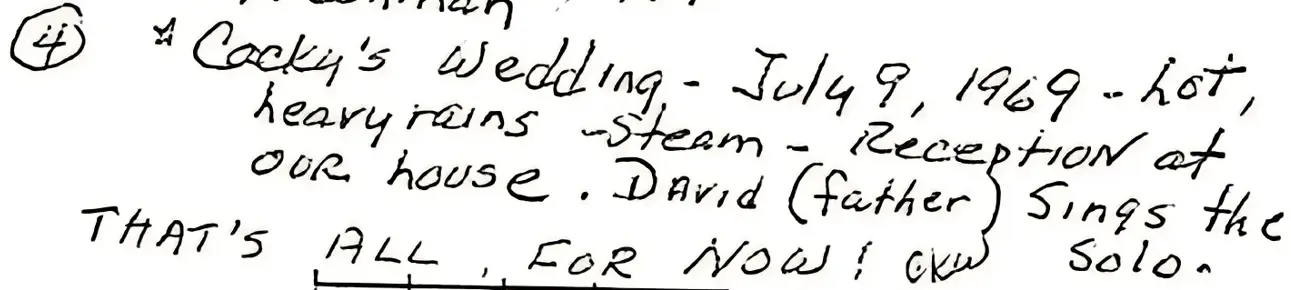 ④ * Cocky's Wedding - July 9, 1969 - hot,
heavy rains - Steam - Reception at
OUR house. DAVID (father) Sings the
Solo.
THAT'S ALL, FOR NOW! CKW